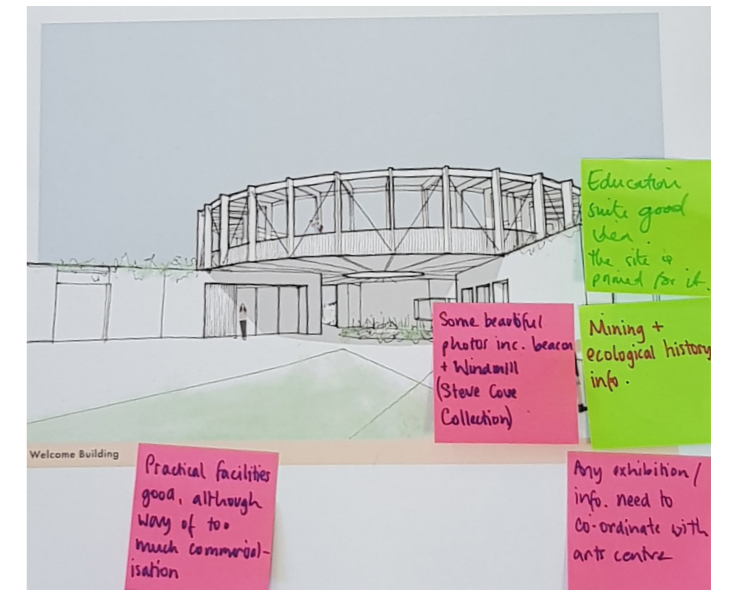 Education
suite good
idea.
the site is
primed for it.
Some beautiful
photos inc. beacon
+ Windmill
(Steve Cove
Collection)
Mining +
ecological history
info.
Welcome Building
Practical facilities
good, although
way of too
much commercial-
isation
Any exhibition/
info. need to
co-ordinate with
arts centre